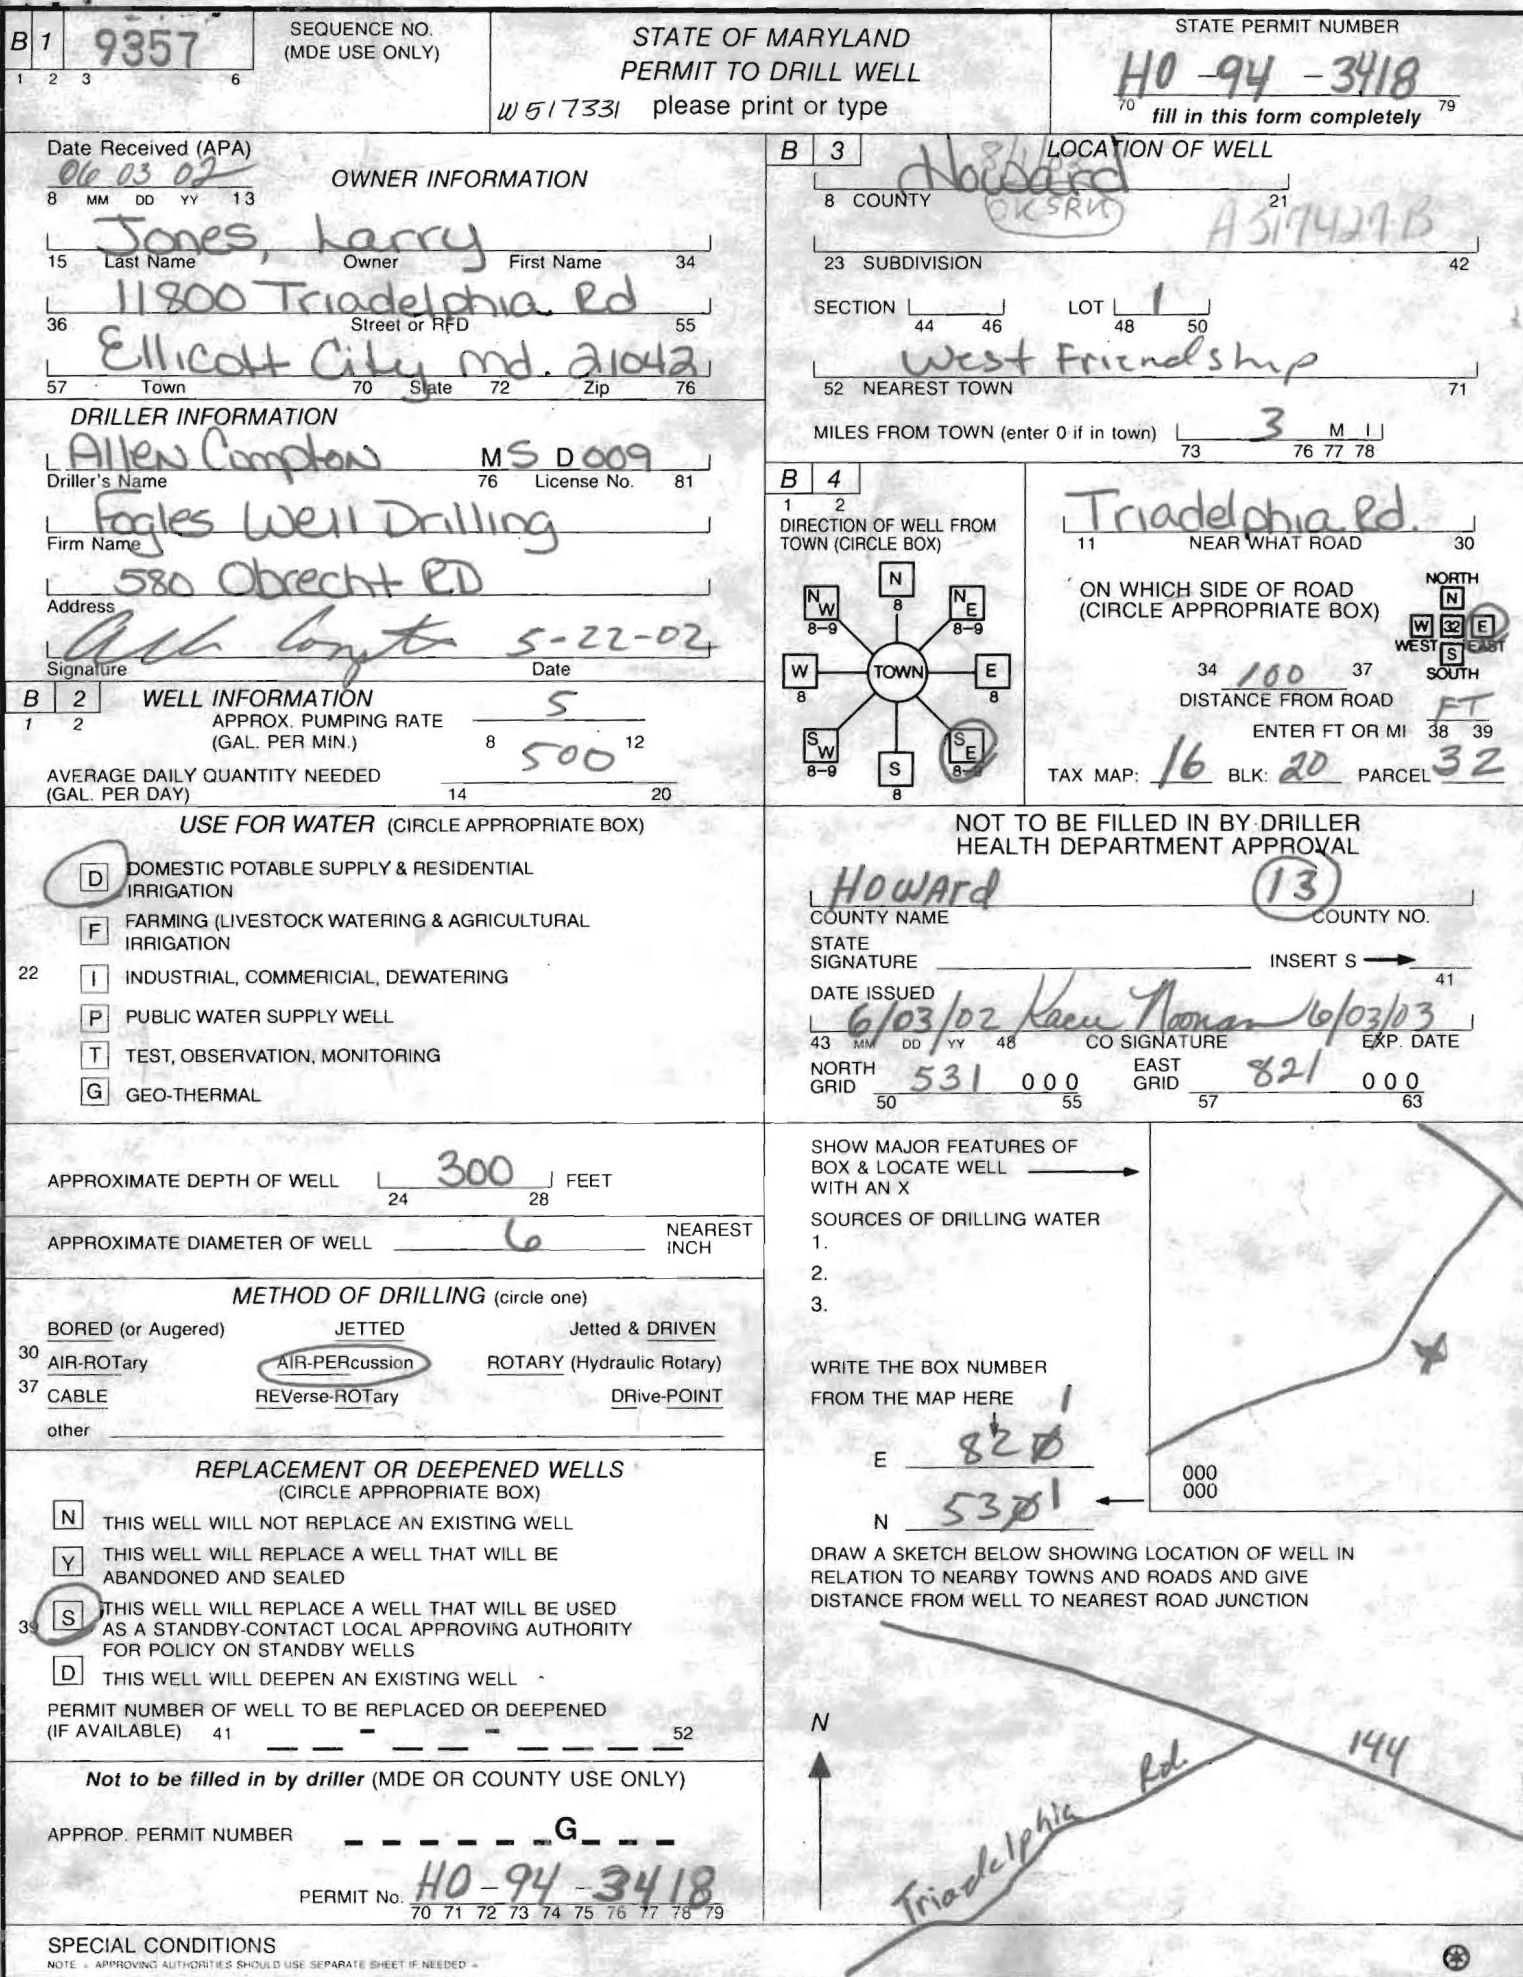 B 1 9357
1 2 3 6
SEQUENCE NO.
(MDE USE ONLY)
STATE OF MARYLAND
PERMIT TO DRILL WELL
W517331 please print or type
STATE PERMIT NUMBER
HO-94-3418
70 79
fill in this form completely
Date Received (APA)
06 03 02
8 MM DD YY 13
OWNER INFORMATION
Jones, Larry
15 Last Name Owner First Name 34
11800 Triadelphia Rd
36 Street or RFD 55
Ellicott City Md. 21042
57 Town 70 State 72 Zip 76
DRILLER INFORMATION
Allen Compton MS D009
Driller's Name 76 License No. 81
Fogles Well Drilling
Firm Name
580 Obrecht RD
Address
5-22-02
Signature Date
B 2 WELL INFORMATION
1 2
APPROX. PUMPING RATE 5
(GAL. PER MIN.) 8 12
AVERAGE DAILY QUANTITY NEEDED 500
(GAL. PER DAY) 14 20
USE FOR WATER (CIRCLE APPROPRIATE BOX)
D DOMESTIC POTABLE SUPPLY & RESIDENTIAL
IRRIGATION
F FARMING (LIVESTOCK WATERING & AGRICULTURAL
IRRIGATION
22 I INDUSTRIAL, COMMERICIAL, DEWATERING
P PUBLIC WATER SUPPLY WELL
T TEST, OBSERVATION, MONITORING
G GEO-THERMAL
APPROXIMATE DEPTH OF WELL 300 FEET
24 28
APPROXIMATE DIAMETER OF WELL 6 NEAREST
INCH
METHOD OF DRILLING (circle one)
BORED (or Augered) JETTED Jetted & DRIVEN
30 AIR-ROTary AIR-PERcussion ROTARY (Hydraulic Rotary)
37 CABLE REVerse-ROTary DRive-POINT
other
REPLACEMENT OR DEEPENED WELLS
(CIRCLE APPROPRIATE BOX)
N THIS WELL WILL NOT REPLACE AN EXISTING WELL
Y THIS WELL WILL REPLACE A WELL THAT WILL BE
ABANDONED AND SEALED
39 S THIS WELL WILL REPLACE A WELL THAT WILL BE USED
AS A STANDBY-CONTACT LOCAL APPROVING AUTHORITY
FOR POLICY ON STANDBY WELLS
D THIS WELL WILL DEEPEN AN EXISTING WELL
PERMIT NUMBER OF WELL TO BE REPLACED OR DEEPENED
(IF AVAILABLE) 41 52
Not to be filled in by driller (MDE OR COUNTY USE ONLY)
APPROP. PERMIT NUMBER G
PERMIT No. HO-94-3418
70 71 72 73 74 75 76 77 78 79
SPECIAL CONDITIONS
NOTE - APPROVING AUTHORITIES SHOULD USE SEPARATE SHEET IF NEEDED -
B 3 LOCATION OF WELL
Howard
8 COUNTY 21
OK SRK A517427-B
23 SUBDIVISION 42
SECTION LOT 1
44 46 48 50
West Friendship
52 NEAREST TOWN 71
MILES FROM TOWN (enter 0 if in town) 3 M I
73 76 77 78
B 4
1 2
DIRECTION OF WELL FROM
TOWN (CIRCLE BOX)
N
8
NW NE
8-9 8-9
W TOWN E
8 8
SW SE
8-9 8-9
S
8
Triadelphia Rd.
11 NEAR WHAT ROAD 30
ON WHICH SIDE OF ROAD
(CIRCLE APPROPRIATE BOX)
NORTH
N
W 32 E
WEST EAST
S
SOUTH
34 100 37
DISTANCE FROM ROAD
FT
ENTER FT OR MI 38 39
TAX MAP: 16 BLK: 20 PARCEL 32
NOT TO BE FILLED IN BY DRILLER
HEALTH DEPARTMENT APPROVAL
Howard 13
COUNTY NAME COUNTY NO.
STATE
SIGNATURE INSERT S
41
DATE ISSUED
6/03/02 Karen Noonan 6/03/03
43 MM DD YY 48 CO SIGNATURE EXP. DATE
NORTH
GRID 531 000
50 55
EAST
GRID 821 000
57 63
SHOW MAJOR FEATURES OF
BOX & LOCATE WELL
WITH AN X
SOURCES OF DRILLING WATER
1.
2.
3.
WRITE THE BOX NUMBER
FROM THE MAP HERE
1
E 820
N 5301
000
000
DRAW A SKETCH BELOW SHOWING LOCATION OF WELL IN
RELATION TO NEARBY TOWNS AND ROADS AND GIVE
DISTANCE FROM WELL TO NEAREST ROAD JUNCTION
N
144
Triadelphia Rd.